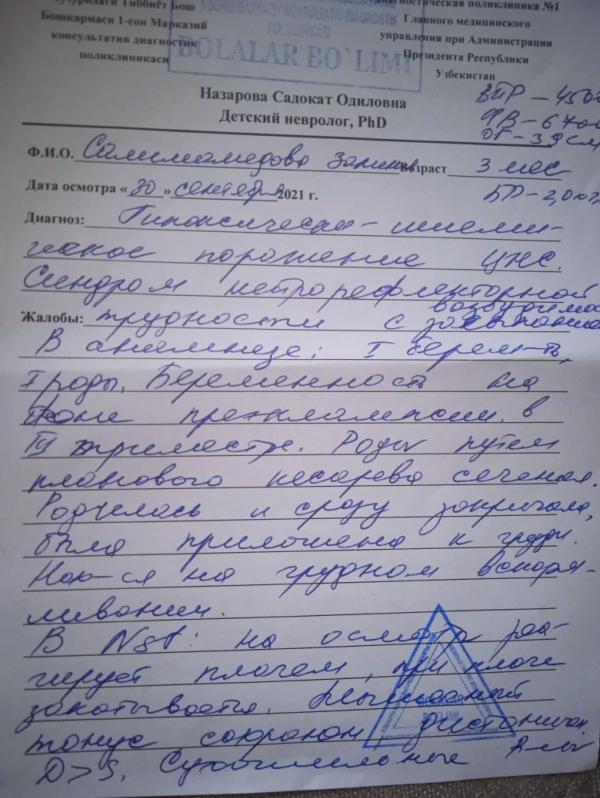 Тиббиёт Бош
Бошкармаси 1-сон Марказий
консультатив диагностик
поликлиникаси
BOLALAR BO`LIMI
поликлиника №1
Главного медицинского
управления при Администрации
Президента Республики
Узбекистан
Назарова Садокат Одиловна
Детский невролог, PhD
ОГ - 39 см
Ф.И.О. возраст 3 мес
Дата осмотра « 30 » сентября 2021 г.
Диагноз: Гипоксически - ишеми-
ческое поражение ЦНС.
Синдром нейрорефлекторной
возбудимос
Жалобы: трудности с
В анамнезе: I беремть,
I роды. Беременность на
фоне преэклампсии в
III триместре. Роды путем
планового кесарева сечения.
Родилась и сразу закричала,
была приложена к груди.
Нах-ся на грудном вскарм-
ливании.
В NSt: на осмотр реа-
гирует плачем, при плаче
закатывается. Мышечный
тонус сохранен дистония
D>S. Сухожильные